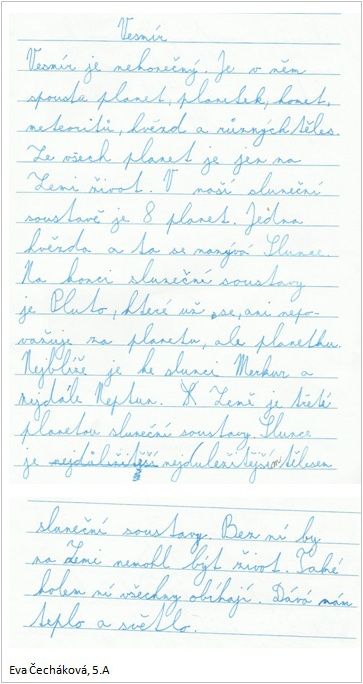 Vesmír
Vesmír je nekonečný. Je v něm
spousta planet, planetek, komet,
meteoritů, hvězd a různých těles.
Ze všech planet je jen na
Zemi život. V naší sluneční
soustavě je 8 planet. Jedna
hvězda a ta se nanývá Slunce.
Na konci sluneční soustavy
je Pluto, které už se, ani nepo-
važuje za planetu, ale planetku.
Nejblíže je ke slunci Merkur a
nejdále Neptun. Země je třetí
planetou sluneční soustavy. Slunce
je nejdůležitější nejduležitější tělesem
sluneční soustavy. Bez ní by
na Zemi nemohl být život. Také
kolem ní všechny obíhají. Dává nám
teplo a světlo.
Eva Čecháková, 5.A